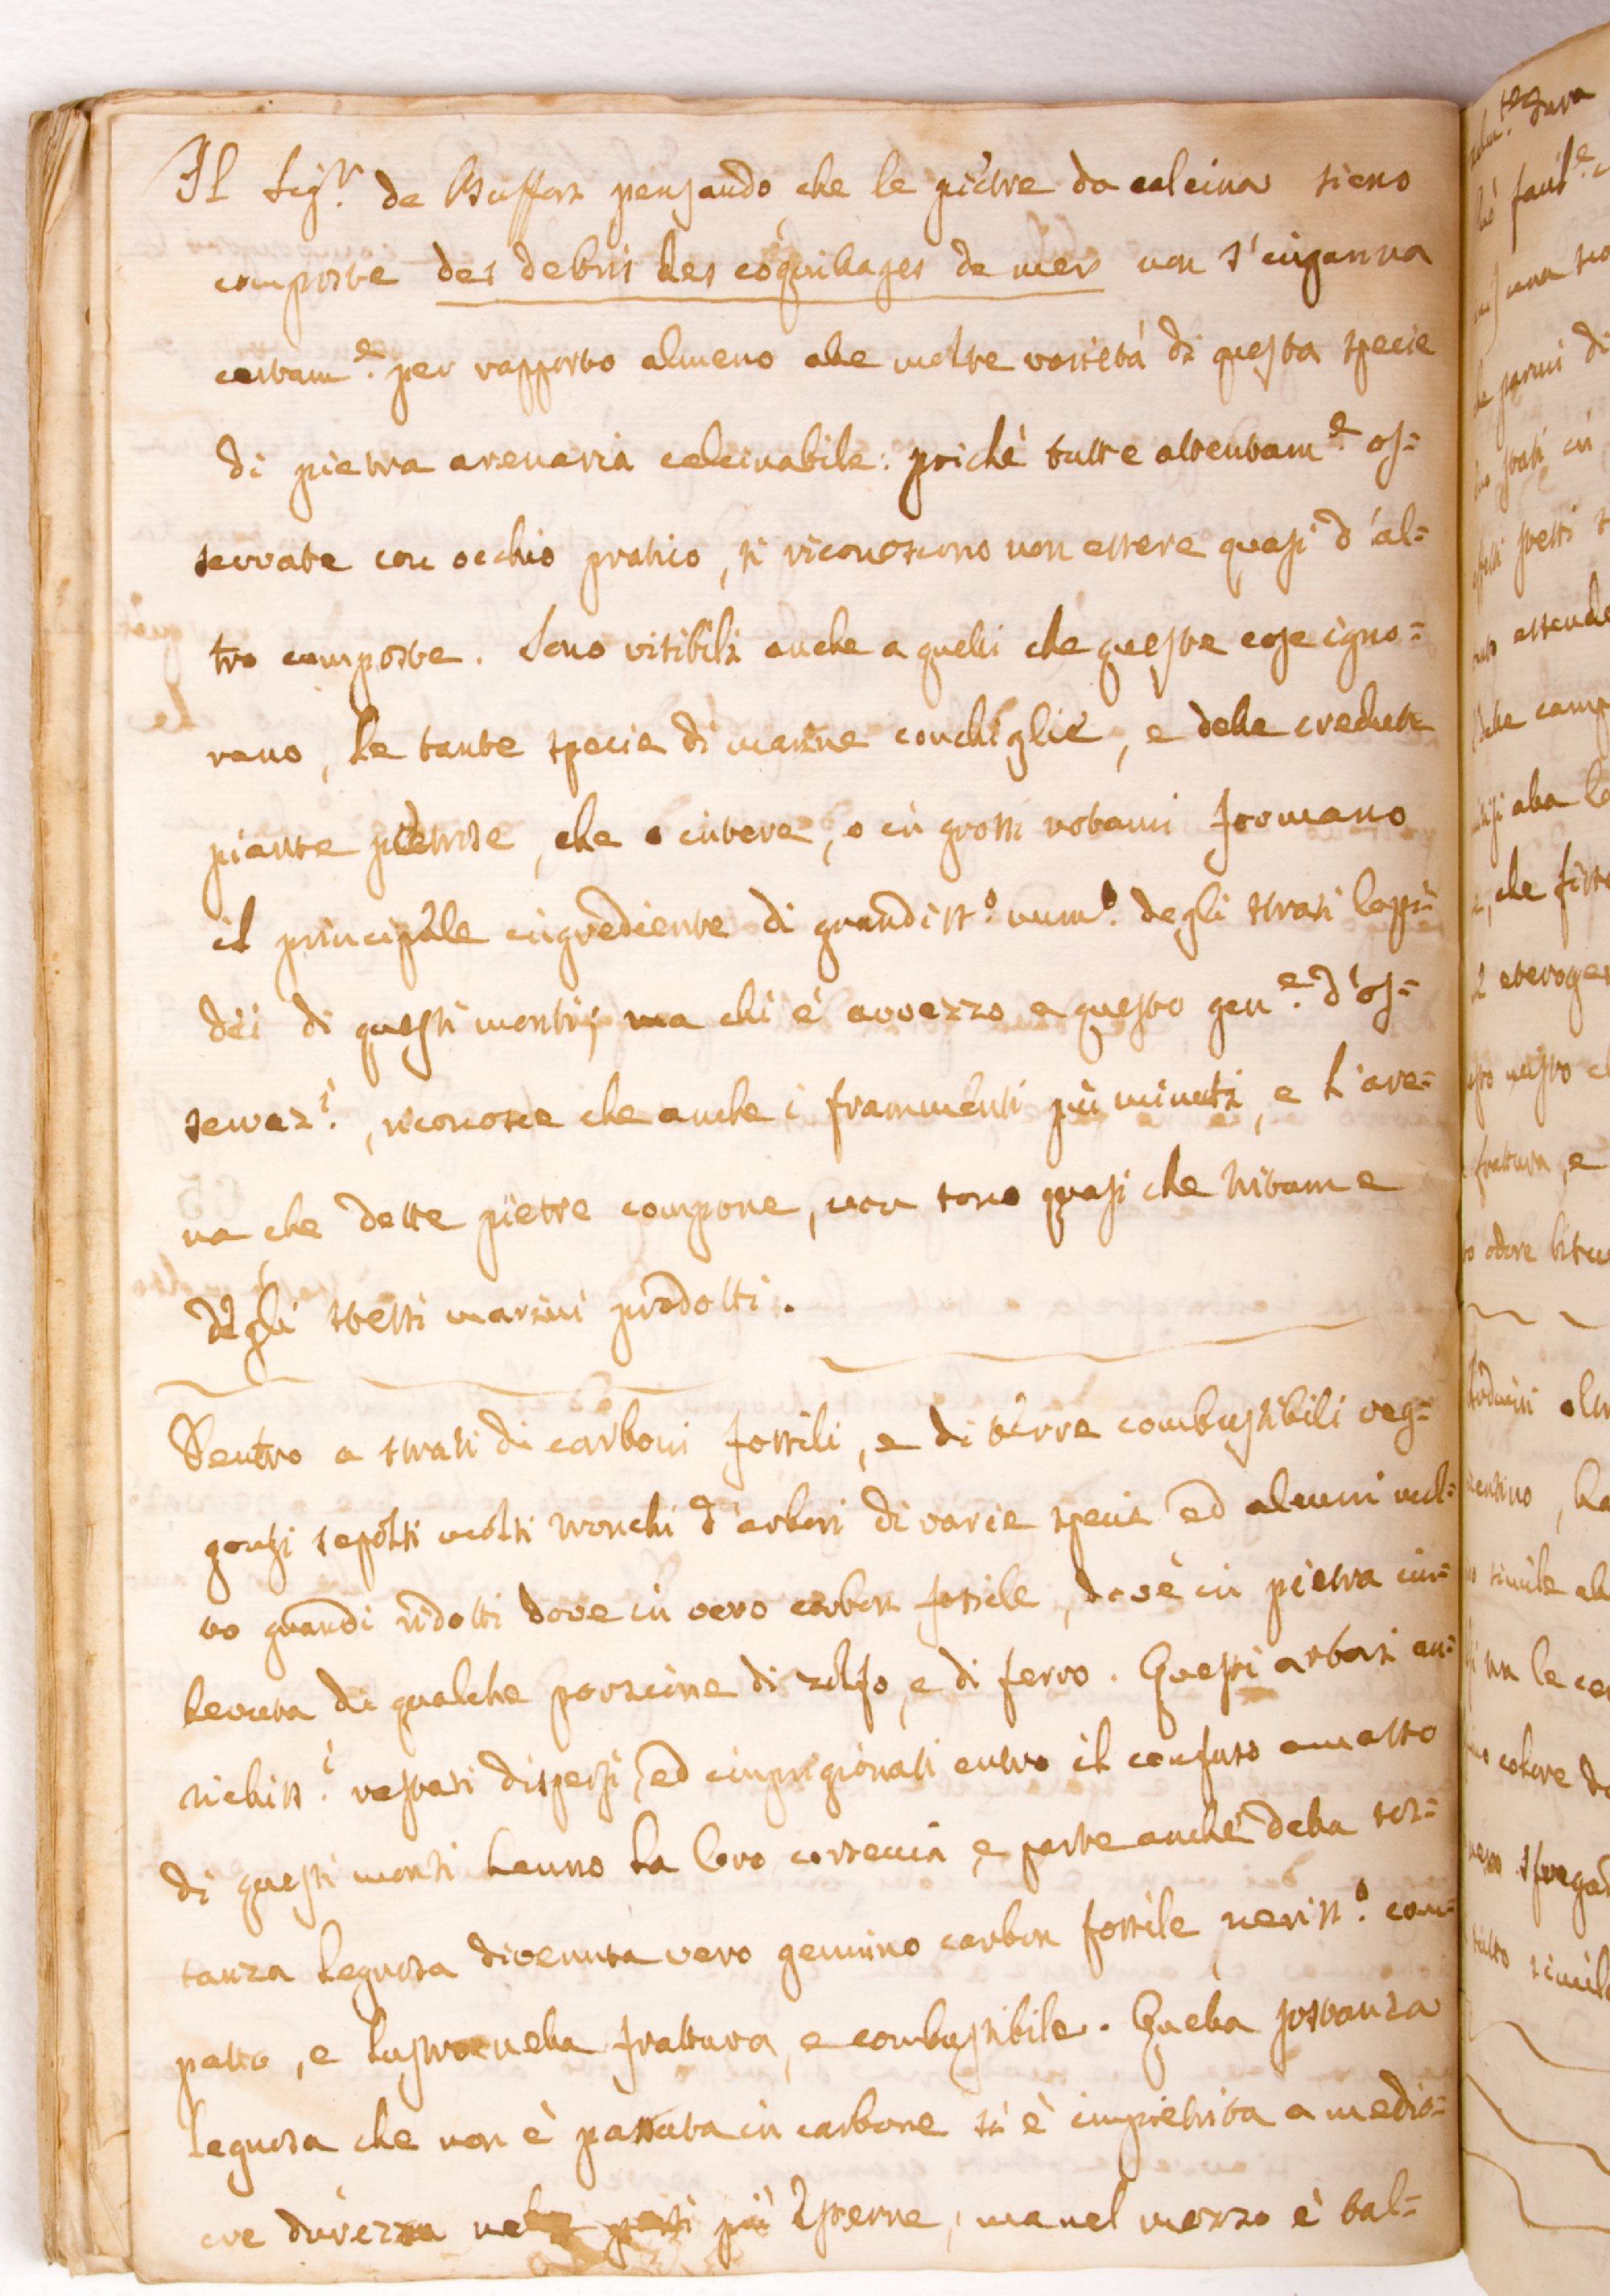 Il Sig.r de Buffon pensando che le pietre da calcina sieno
composte des debris des coquillages de mer non s'inganna
certam.e per rapporto almeno alle molte varietà di questa specie
di pietra arenaria calcinabile: poichè tutte attentam.e os=
servate con occhio pratico, si riconoscono non essere quasi d'al=
tro composte. Sono visibili anche a quelli che queste cose igno=
rano, le tante specie di marine conchiglie, e delle credute
piante pietrose, che o intere, o in grossi rotami formano
il principale ingrediente di grandiss.o num.o degli strati lapi=
dei di questi monti; ma chi è avvezzo a questo gen.e d'os=
servaz.i, riconosce che anche i frammenti più minuti, e l'are=
na che dette pietre compone, non sono quasi che tritame
degli stessi marini prodotti.
Dentro a strati di carboni fossili, e di terre combustibili veg=
gonsi sepolti molti tronchi d'arbori di varie specie ed alcuni mol=
to grandi ridotti dove in vero carbon fossile, dove in pietra
di qualche porzione di zolfo, e di ferro. Questi arbori an=
tichiss.i restati dispersi, ed imprigionati entro il confuso
di questi monti hanno la loro corteccia, e parte anche della sos=
tanza legnosa divenuta vero genuino carbon fossile neriss.o com=
patto, e lustro nella frattura, e combustibile. Quella sostanza
legnosa che non è passata in carbone si è impietrita a medio=
cre durezza nelle parti più esterne, ma nel mezzo è tal=